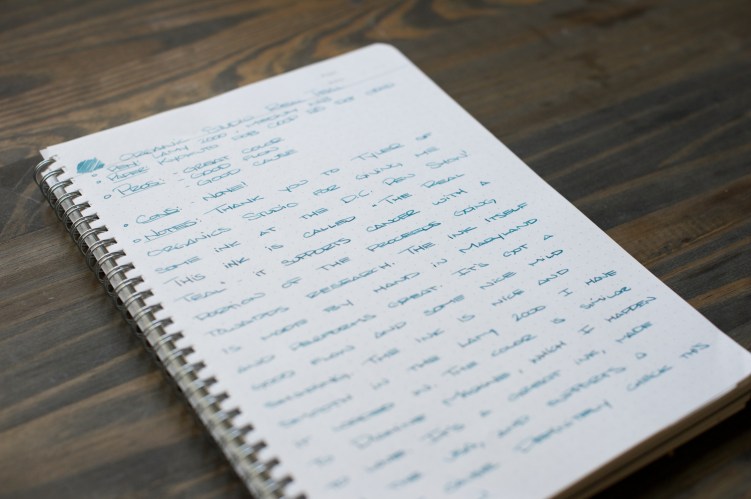 ORGANICS STUDIO REAL TEAL
PEN: LAMY 2000,
PAPER: KYOKUTO
PROS: GREAT COLOR
: GOOD FLOW
: GOOD CAUSE
CONS: NONE!
NOTES: THANK YOU TO TYLER OF
ORGANICS STUDIO FOR GIVING ME
SOME INK AT THE D.C. PEN SHOW!
THIS INK IS CALLED "THE REAL
TEAL" - IT SUPPORTS CANCER WITH A
PORTION OF THE PROCEEDS GOING
TOWARDS RESEARCH. THE INK ITSELF
IS MADE BY HAND IN MARYLAND
AND PERFORMS GREAT. IT'S GOT A
GOOD FLOW AND SOME NICE MILD
SHADING. THE INK IS NICE AND
SMOOTH IN THE LAMY 2000 I HAVE
IT INKED IN. THE COLOR IS SIMILAR
TO, WHICH I HAPPEN
TO LOVE. IT'S A GREAT INK, MADE
IN THE USA, AND SUPPORTS A
CAUSE. DEFINITELY CHECK THIS